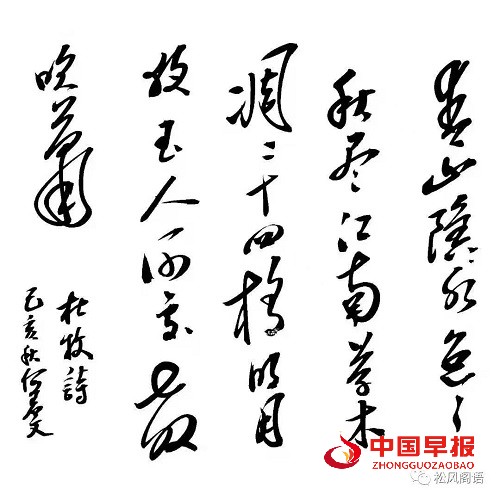 青山隱々水迢々
秋盡江南草木
凋二十四橋明月
夜玉人何處教
吹簫
杜牧詩
己亥秋何文
中国早报
ZHONGGUOZAOBAO
松风阁语